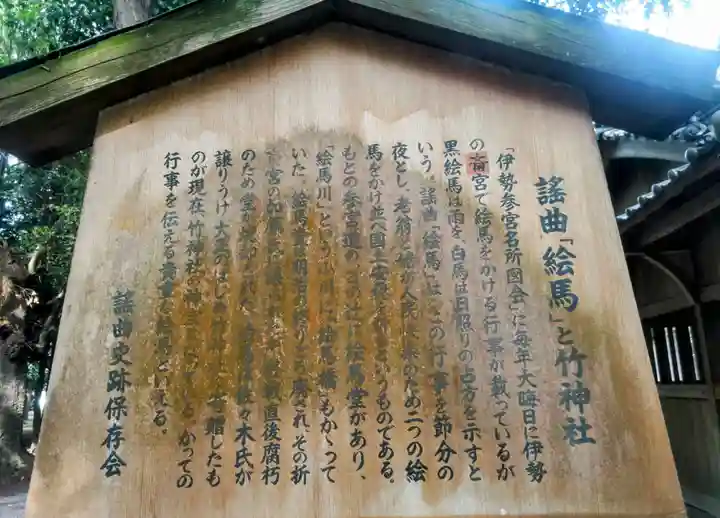 謡曲「絵馬」と竹神社
「伊勢参宮名所図会」に毎年大晦日に伊勢
の斎宮で絵馬をかける行事が載っているが
黒絵馬は雨を、白馬は日照りの占方を示すと
いう。謡曲「絵馬」は、この行事を節分の
夜とし、老翁と姥が人民快楽のため二つの絵
馬をかけ並べ国土安泰を祈るというものである。
もとの参宮道の
に絵馬堂があり、
「絵馬川」という小川に「絵馬橋」もかゝって
いた。絵馬堂は明治の終りごろ廃され、その折
戦直後腐朽
のため
木氏が
譲りうけ大
贈したも
のが現在竹神社の神
かつての
行事を伝える貴重な絵馬といえる。
謡曲史跡保存会